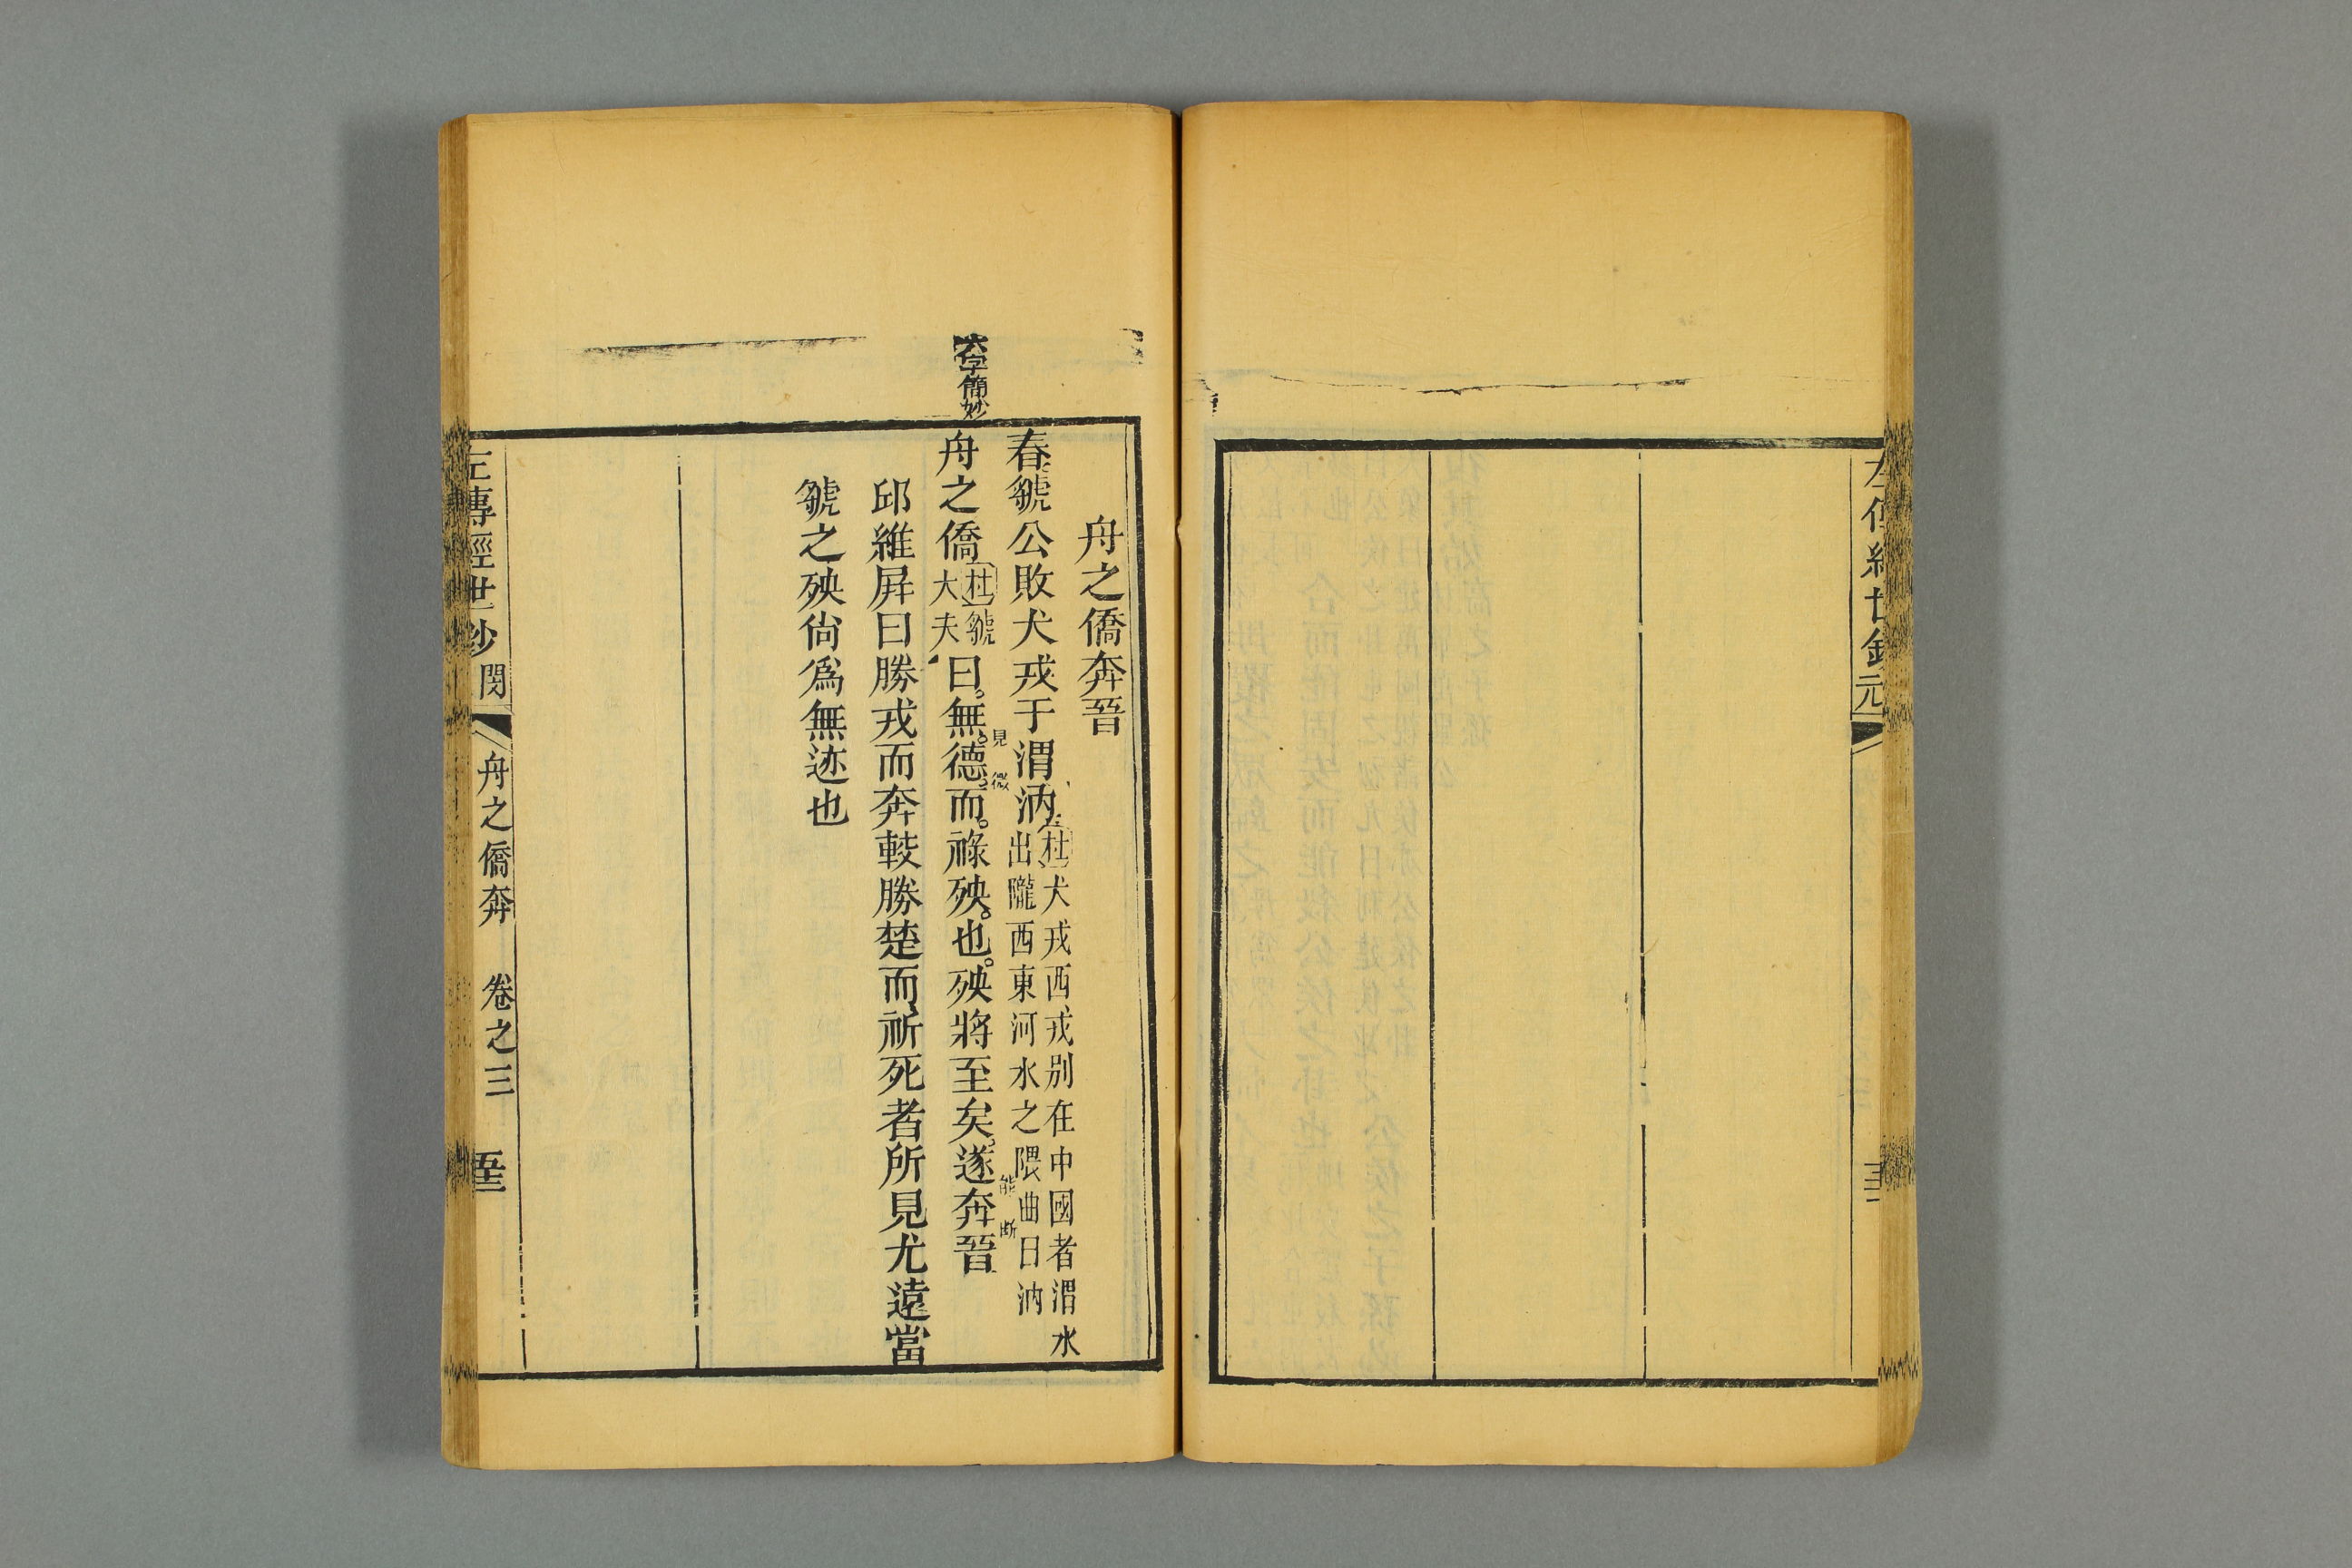 左傳經世鈔元
舟之僑奔晉
春虢公敗犬戎于渭汭
杜犬戎西戎別在中國者渭水
出隴西東河水之隈曲曰汭
六字簡妙
舟之僑
杜虢
大夫
曰無德而祿殃也殃將至矣遂奔晉
見微
能斷
邱維屛曰勝戎而奔較勝楚而祈死者所見尤遠當
虢之殃尙爲無迹也
左傳經世鈔 閔 舟之僑奔 卷之三